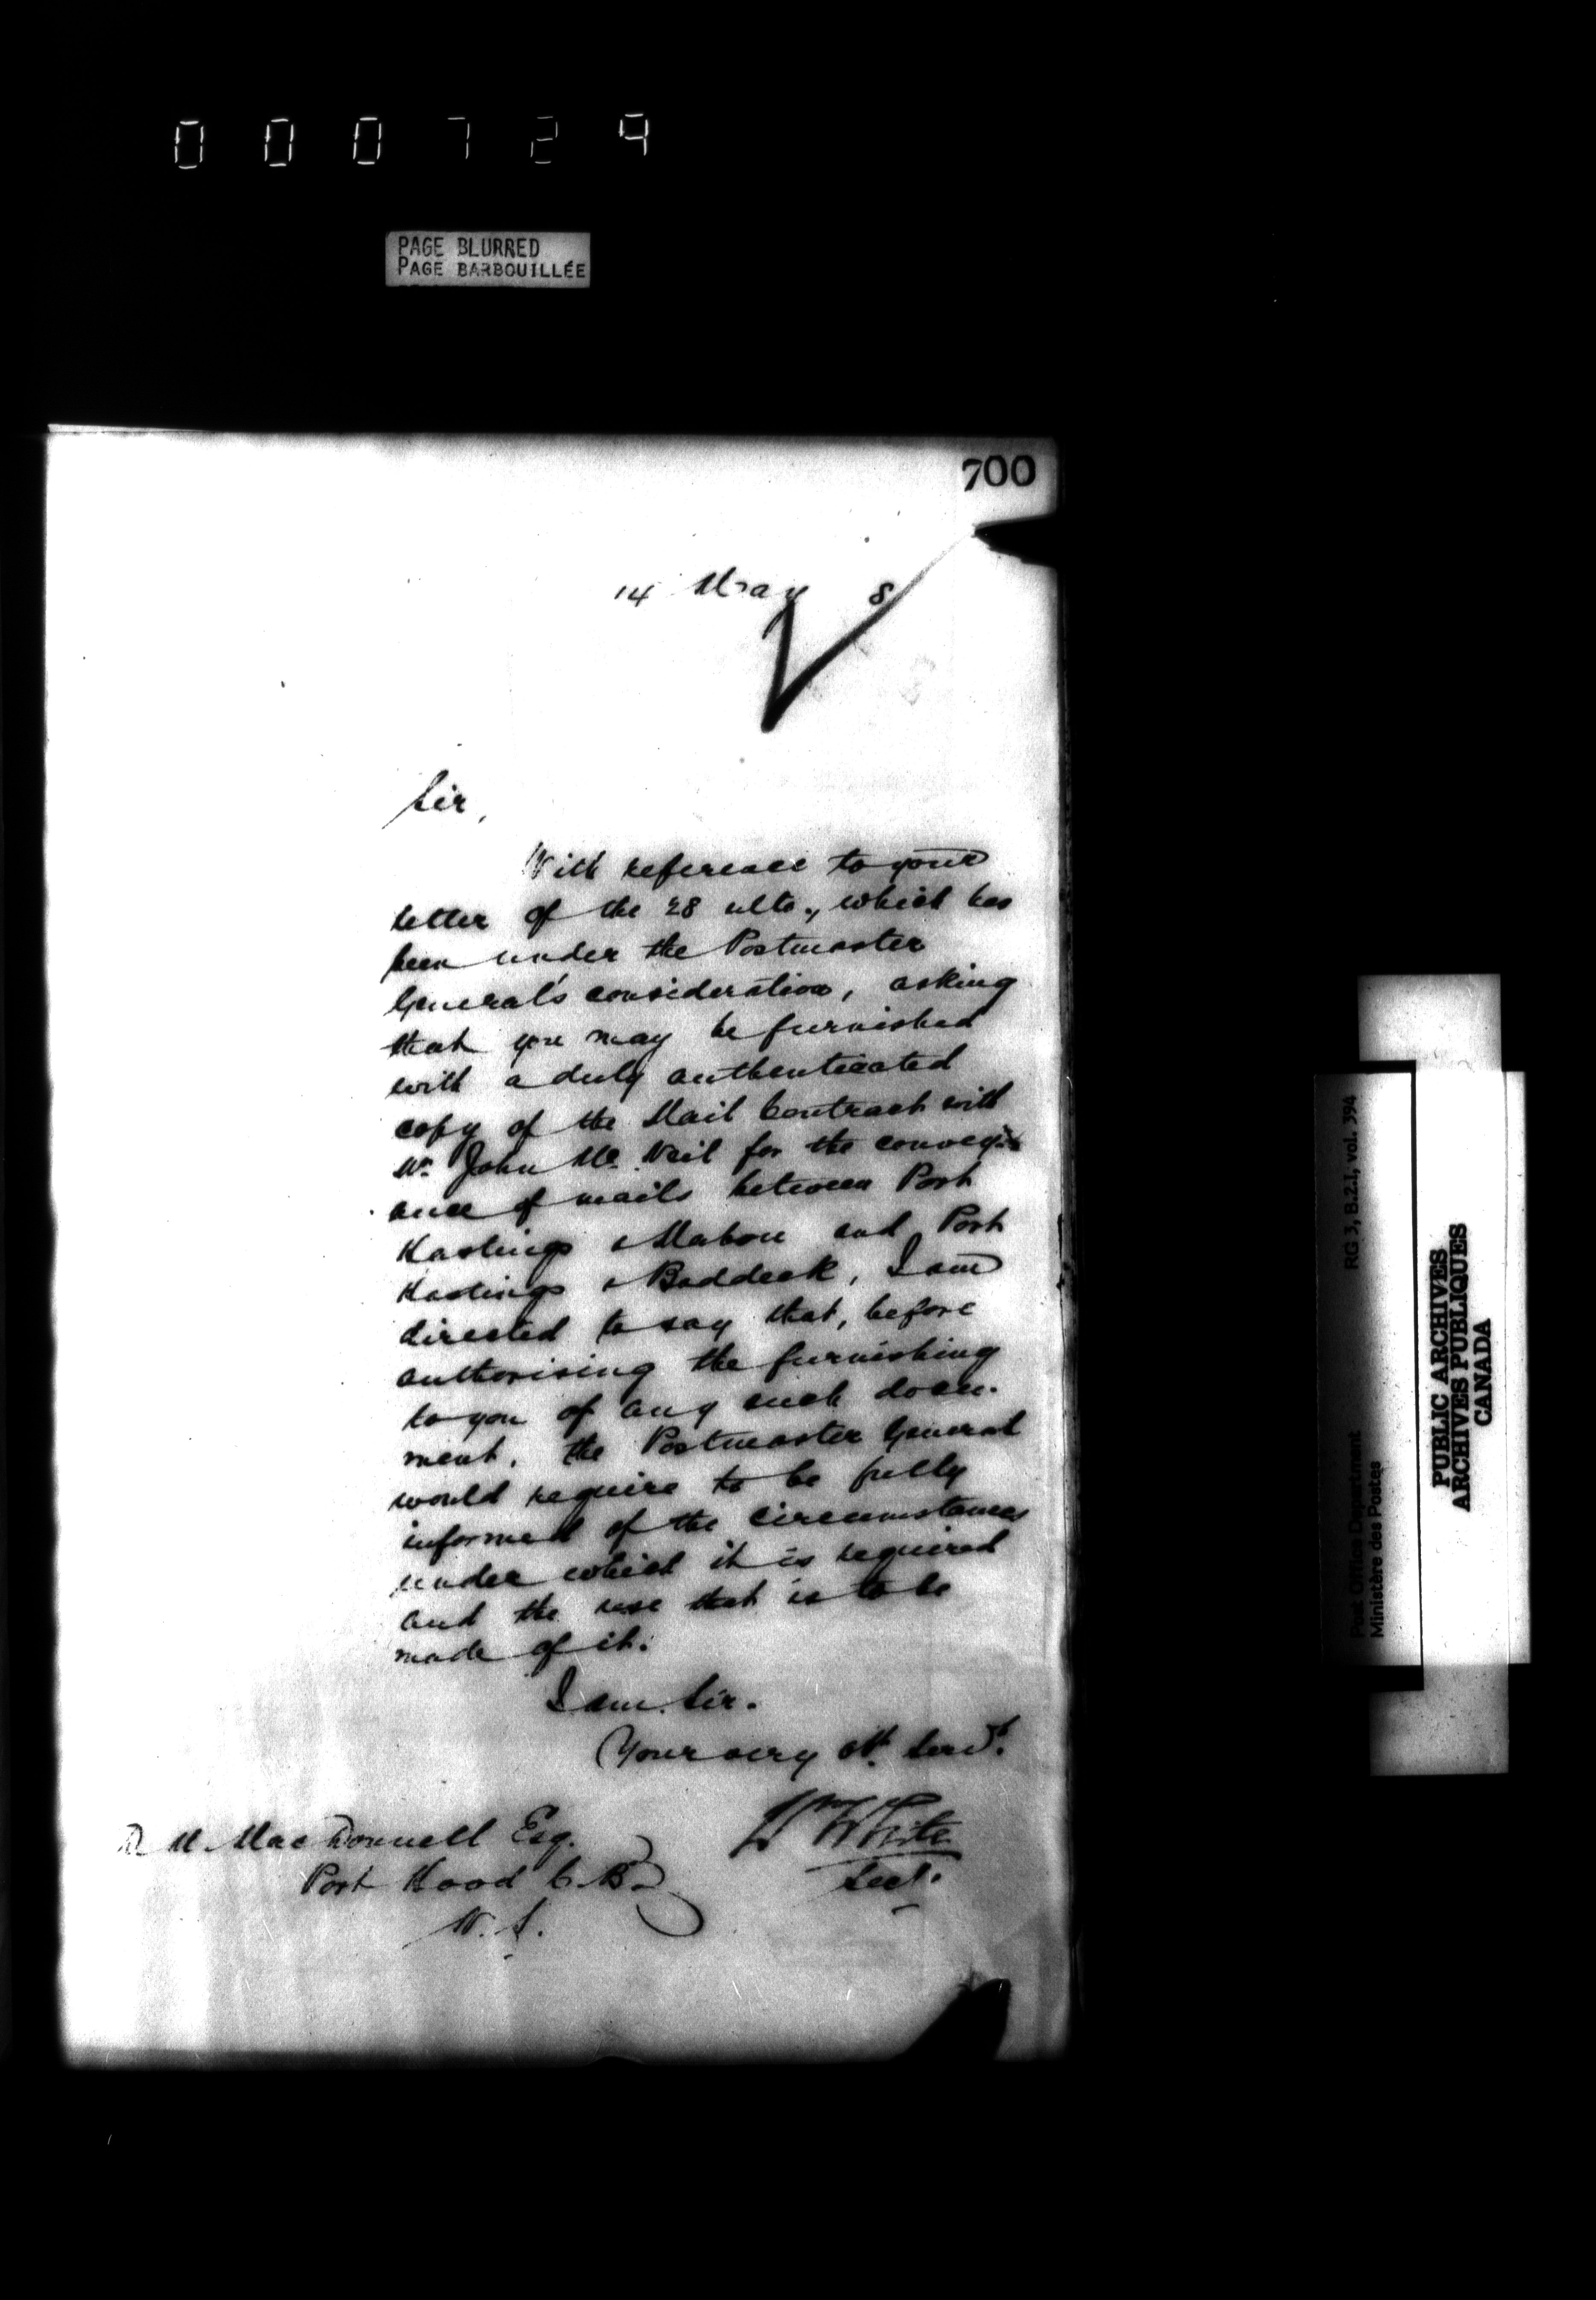 000729
PAGE BLURRED
PAGE BARBOUILLÉE
700
14 May 8
Sir,
With reference to your
letter of the 28 ulto., which has
been under the Postmaster
General's consideration, asking
that you may be furnished
with a duly authenticated
copy of the Mail Contract with
Mr. John McNeil for the convey-
ance of mails between Port
Hastings & Mabou and Port
Hastings & Baddeck, I am
directed to say that, before
authorising the furnishing
to you of any such docu-
ment, the Postmaster General
would require to be fully
informed of the circumstances
under which it is required
and the use that is to be
made of it.
I am, Sir.
Your very obt. Servt.
Wm White
Secy.
M. MacDonnell Esq.
Port Hood C.B.
N.S.
RG 3, B.2.1, vol. 394
Post Office Department
Ministère des Postes
PUBLIC ARCHIVES
ARCHIVES PUBLIQUES
CANADA